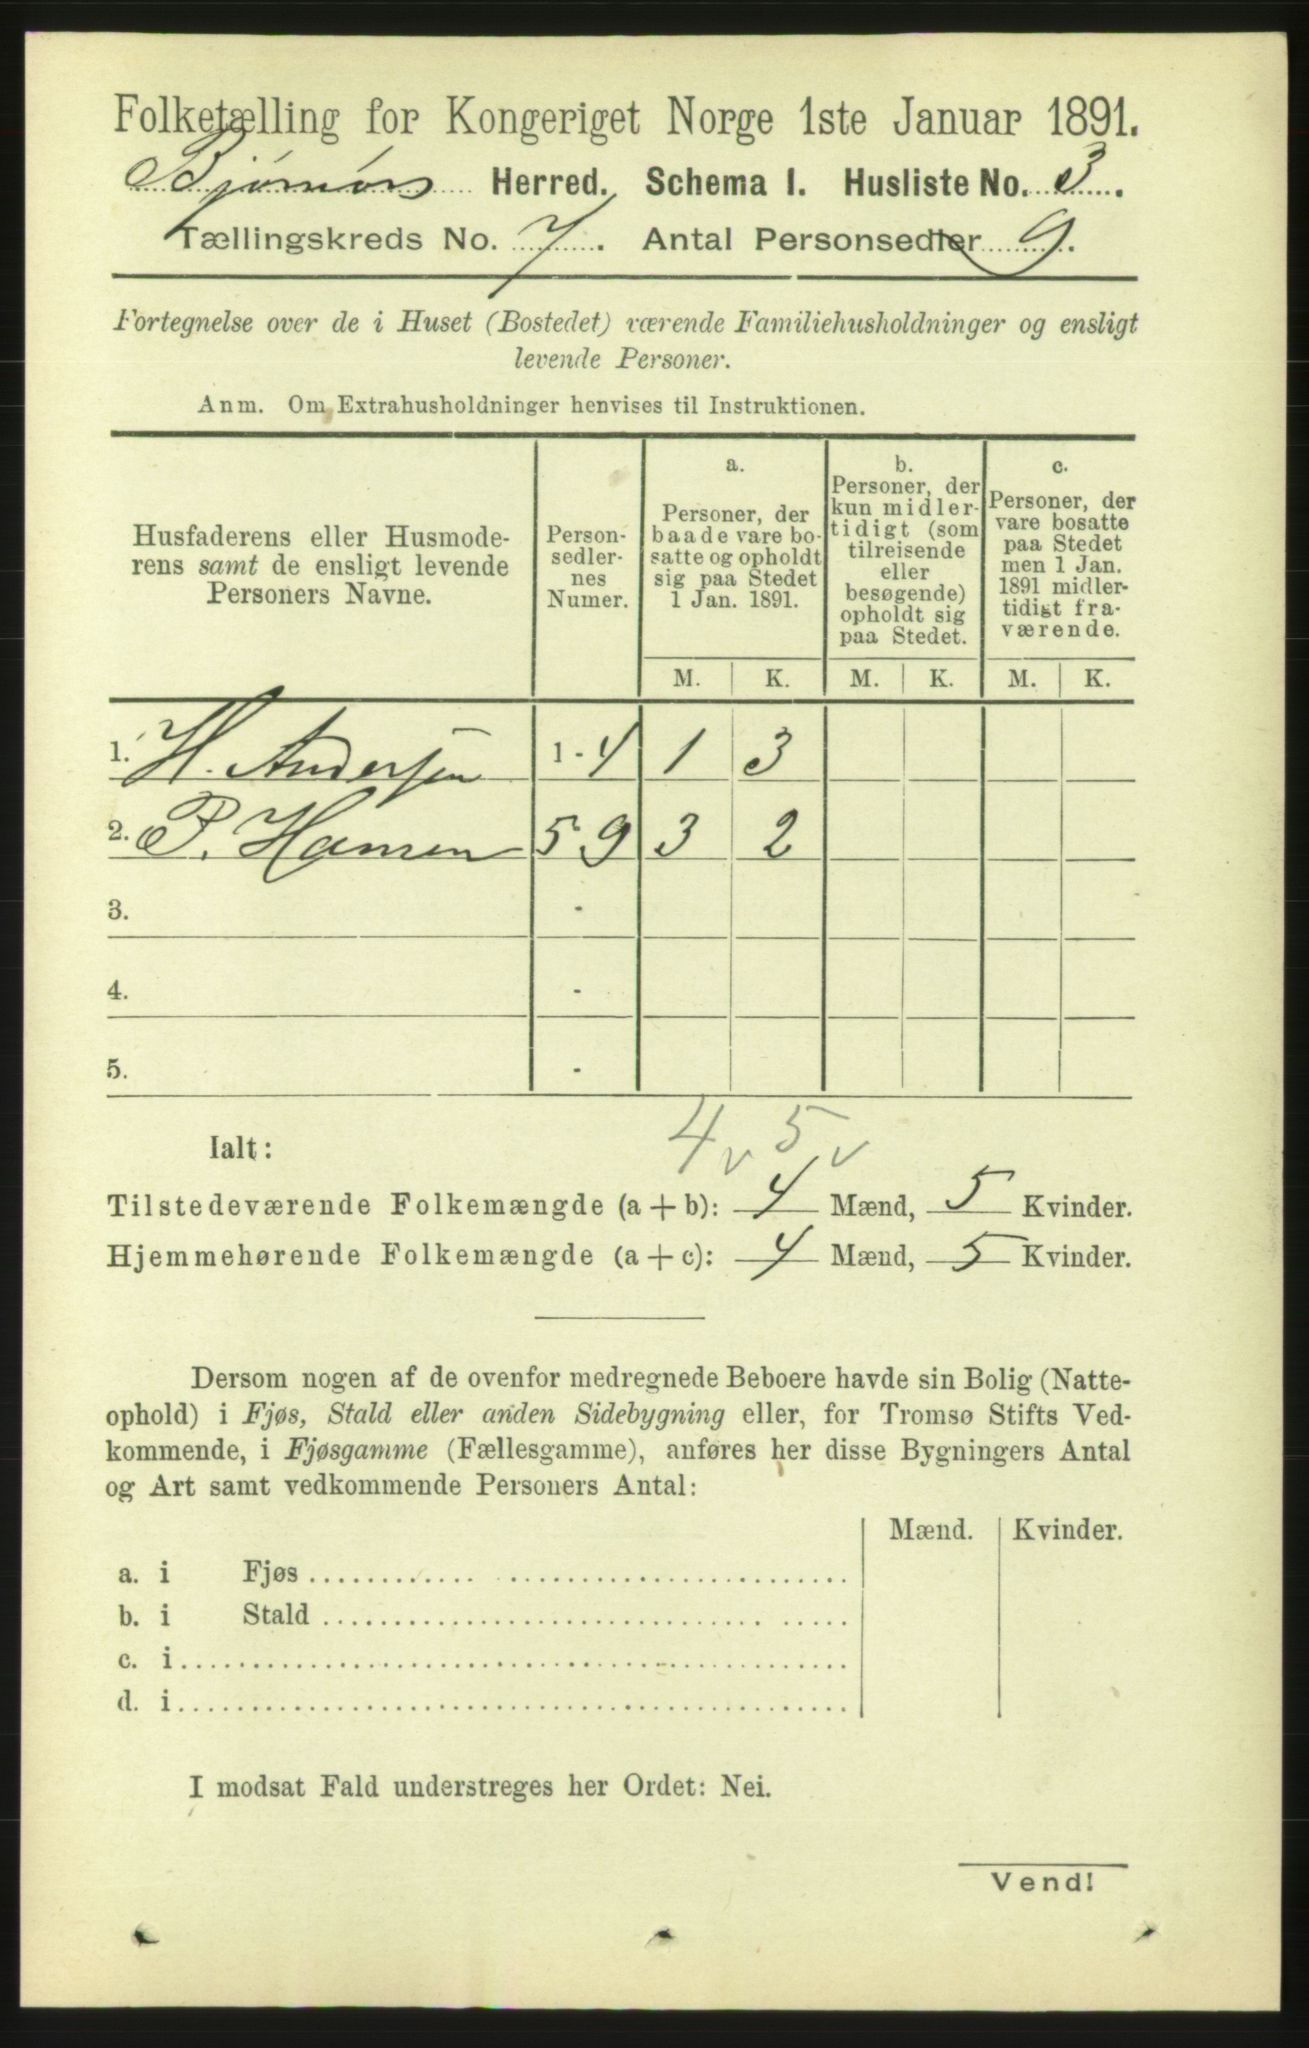 Folketælling for Kongeriget Norge 1ste Januar 1891.
Bjørnørs Herred. Schema I. Husliste No. 3.
Tællingskreds No. 7. Antal Personsedler 9.
Fortegnelse over de i Huset (Bostedet) værende Familiehusholdninger og ensligt
levende Personer.
Anm. Om Extrahusholdninger henvises til Instruktionen.
Husfaderens eller Husmode-
rens samt de ensligt levende
Personers Navne.
Person-
sedler-
nes
Numer.
a.
Personer, der
baade vare bo-
satte og opholdt
sig paa Stedet
1 Jan. 1891.
b.
Personer, der
kun midler-
tidigt (som
tilreisende
eller
besøgende)
opholdt sig
paa Stedet.
c.
Personer, der
vare bosatte
paa Stedet
men 1 Jan.
1891 midler-
tidigt fra-
værende.
M. K. M. K. M. K.
1. H. Andersen 1-4 1 3
2. P. Hansen 5 9 3 2
3. -
4. -
5. -
4 v 5 v
Ialt:
Tilstedeværende Folkemængde (a+b): 4 Mænd, 5 Kvinder.
Hjemmehørende Folkemængde (a+c): 4 Mænd, 5 Kvinder.
Dersom nogen af de ovenfor medregnede Beboere havde sin Bolig (Natte-
ophold) i Fjøs, Stald eller anden Sidebygning eller, for Tromsø Stifts Ved-
kommende, i Fjøsgamme (Fællesgamme), anføres her disse Bygningers Antal
og Art samt vedkommende Personers Antal:
Mænd. Kvinder.
a. i Fjøs
b. i Stald
c. i
d. i
I modsat Fald understreges her Ordet: Nei.
Vend!